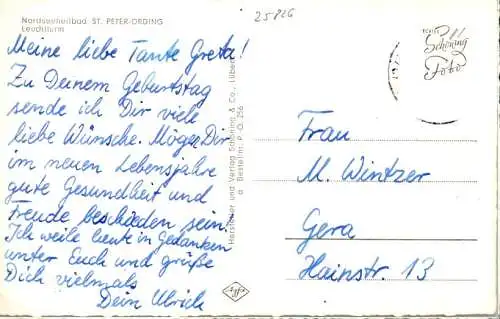 Nordseeheilbad ST. PETER-ORDING
Leuchtturm
25826
Meine liebe Tante Greta!
Zu Deinem Geburtstag
sende ich Dir viele
liebe Wünsche. Möge Dir
im neuen Lebensjahre
gute Gesundheit und
Freude beschieden sein.
Ich weile heute in Gedanken
unter Euch und grüße
Dich vielmals
Dein Ulrich
Hersteller und Verlag Schöning & Co., Lübeck
Bestellnr. P. O. 256
Schöning
Foto
Agfa
Frau
M. Wintzer
Gera
Hainstr. 13